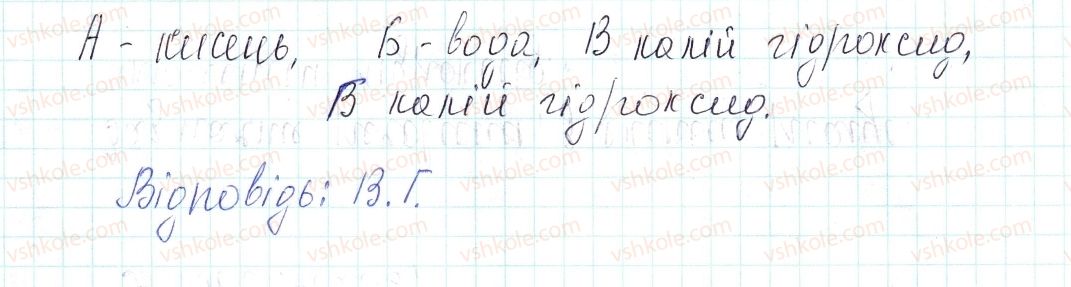 А - кисень, Б - вода, В калій гідроксид,
В калій гідроксид.
Відповідь: В. Г.